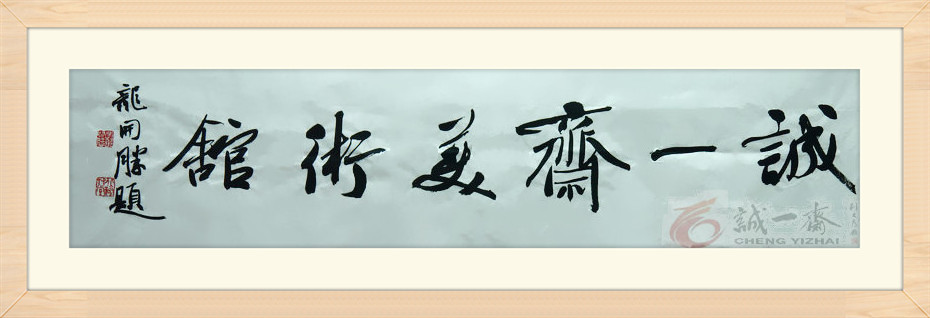 誠一齋美術舘
龍開勝題
誠一齋
CHENG YIZHAI